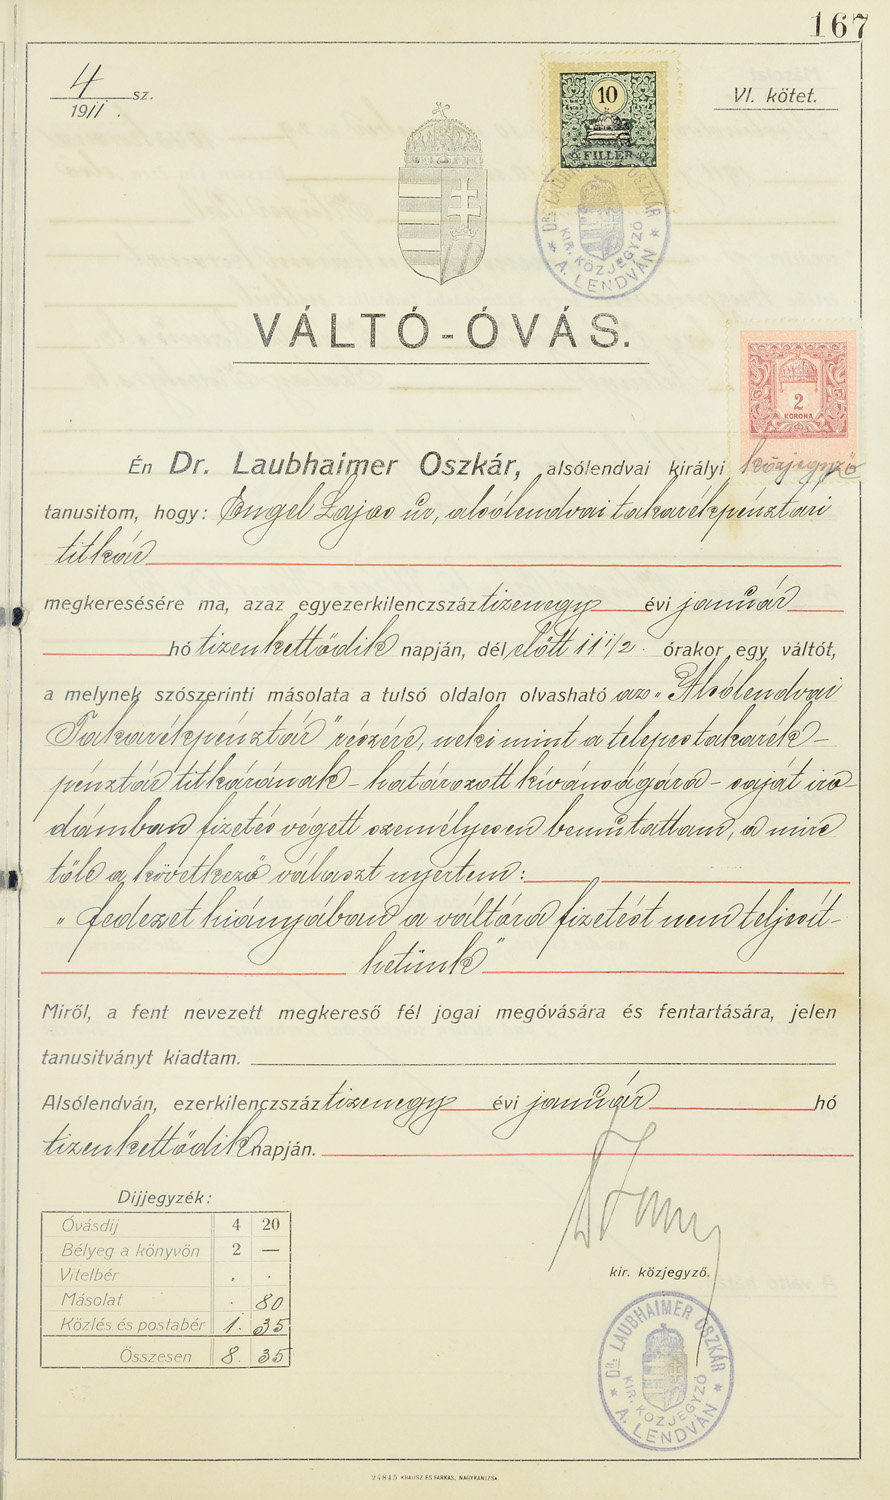 167
4 sz.
1911.
VI. kötet.
10
FILLÉR
DR. LAUBHAIMER OSZKÁR
KIR. KÖZJEGYZŐ
* A. LENDVÁN *
VÁLTÓ-ÓVÁS.
2
KORONA
Én Dr. Laubhaimer Oszkár, alsólendvai királyi közjegyző
tanusitom, hogy: Engel Lajos úr, alsólendvai takarékpénztári
titkár
megkeresésére ma, azaz egyezerkilenczszáz tizenegy évi január
hó tizenkettődik napján, dél előtt 11 1/2 órakor egy váltót,
a melynek szószerinti másolata a tulsó oldalon olvasható az „Alsólendvai
Takarékpénztár" részére, neki mint a telepes takarék-
pénztár titkárának - határozott kívánságára - saját iro-
dámban fizetés végett személyesen bemutattam, a mire
tőle a következő választ nyertem:
„fedezet hiányában a váltóra fizetést nem teljesít-
hetünk"
Miről, a fent nevezett megkereső fél jogai megóvására és fentartására, jelen
tanusitványt kiadtam.
Alsólendván, ezerkilenczszáz tizenegy évi január hó
tizenkettődik napján.
Dijjegyzék:
Óvásdij 4 20
Bélyeg a könyvön 2 —
Vitelbér . .
Másolat . 80
Közlés és postabér 1. 35
Összesen 8. 35
kir. közjegyző.
DR. LAUBHAIMER OSZKÁR
KIR. KÖZJEGYZŐ
* A. LENDVÁN *
24845 KRAUSZ ÉS FARKAS, NAGYKANIZSA